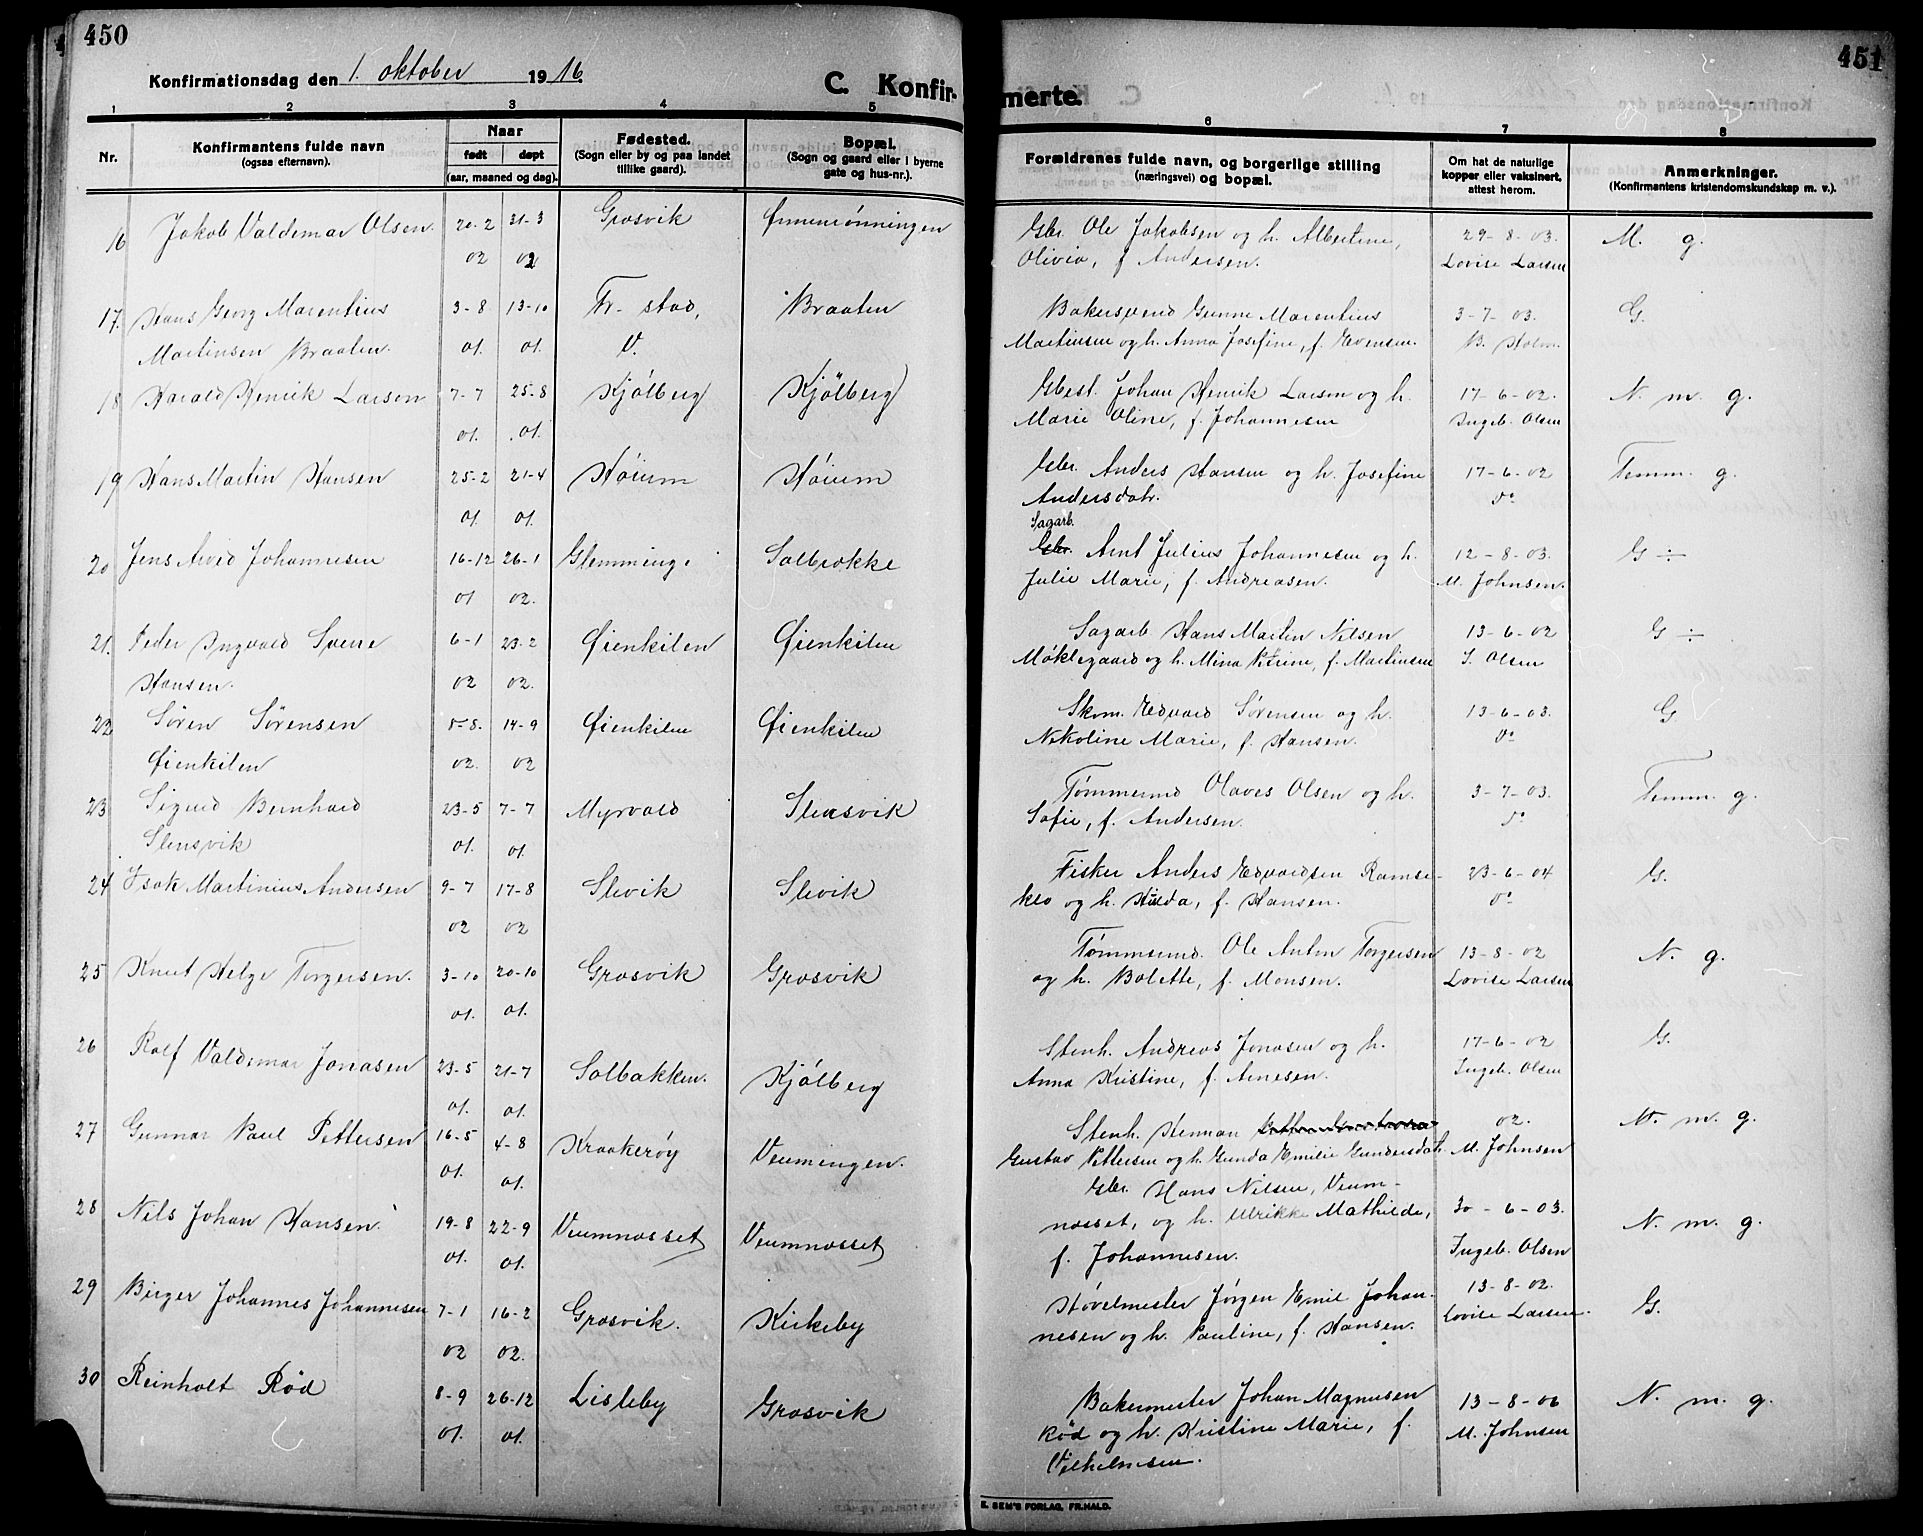 450
Konfirmationsdag den 1. oktober 1916.
C. Konfir-
1 2 3 4 5
Nr.
Konfirmantens fulde navn
(ogsaa efternavn).
Naar
født døpt
(aar, maaned og dag).
Fødested.
(Sogn eller by og paa landet
tillike gaard).
Bopæl.
(Sogn og gaard eller i byerne
gate og hus-nr.).
16 Jakob Valdemar Olsen. 20-2 31-3 Grosvik
02 02
17. Hans Georg Marentius 3-8 13-10 Fr. stad, Braaten
Martinsen Braaten. 01. 01. V.
18 Harald Henrik Larsen 7-7 25-8 Kjølberg Kjølberg
01. 01.
19 Hans Martin Hansen 25-2 21-4 Høium Høium
01. 01.
20 Jens Arvid Johannesen 16-12 26-1 Glemminge Solbrække
01 02.
21. Peder Ingvald Sverre 6-1 23-2 Øienkilen Øienkilen
Hansen. 02 02.
22 Søren Sørensen 5-8. 14-9 Øienkilen Øienkilen
Øienkilen 02. 02
23 Sigurd Bernhard 23-5 7-7 Myrvold Slensvik
Slensvik 01. 01.
24 Isak Martinius Andersen 9-7 17-8 Slevik Slevik
02 02
25 Knut Helge Torgersen. 3-10 20-10 Grosvik Grosvik
01. 01.
26 Rolf Valdemar Jonasen 23-5 21-7 Solbakken. Kjølberg
01. 01.
27 Gunnar Paul Pettersen 16-5 4-8 Kraakerøy Veumengen.
01. 01.
28 Nils Johan Hansen 19-8 22-9 Veumnesset Veumnesset
01. 01.
29 Birger Johannes Johannesen 7-1 16-2 Grosvik. Kirkeby
02 02.
30 Reinholt Rød 8-9 26-12 Lisleby Grosvik
01. 01.
451
merte.
6 7 8
Forældrenes fulde navn, og borgerlige stilling
(næringsvei) og bopæl.
Om hat de naturlige
kopper eller vaksinert,
attest herom.
Anmerkninger.
(Konfirmantens kristendomskundskap m. v.).
Gbr. Ole Jakobsen og h. Albertine, 29-8-03. M. g.
Olivia, f. Andersen. Lovise Larsen
Bakersvend Gunne Marentius 3-7-03. G.
Martinsen og h. Anna Josefine, f. Evensen. B. Holm.
Gbest. Johan Henrik Larsen og h. 17-6-02. N. m. g.
Marie Oline, f. Johannesen Ingeb. Olsen
Gbr. Anders Hansen og h. Josefine 17-6-02 Temm. g.
Andersdatr. do
Sagarb.
Gbr. Arnt Julius Johannesen og h. 12-8-03. G ÷
Julie Marie, f. Andreasen. M. Johnsen.
Sagarb. Hans Martin Nilsen 13-6-02 G ÷
Møklegaard og h. Mina Petrine, f. Martinsen I. Olsen
Skom. Edvard Sørensen og h. 13-6-03. G
Nikoline Marie, f. Hansen. do
Tømmermd Olaves Olsen og h. 3-7-03. Temm. g.
Sofie, f. Andersen. do
Fisker Anders Edvardsen Ramse- 23-6-04 G.
klo og h. Hilda, f. Hansen. do
Tømmermd. Ole Anton Torgersen 13-8-02 N. g.
og h. Bolette, f. Monsen. Lovise Larsen
Stenh. Andreas Jonasen og h. 17-6-02 G.
Anna Kristine, f. Arnesen. Ingeb. Olsen
Stenh. Herman 02. N. m. g.
Gustav Pettersen og h. Gunda Emilie Gundersdatr. M. Johnsen
Gbr. Hans Nilsen, Veum-
nesset, og h. Ulrikke Mathilde, 30-6-03. N. m. g.
f. Johannesen. Ingeb. Olsen
Høvelmester Jørgen Emil Johan- 13-8-02. G.
nesen og h. Pauline, f. Hansen. Lovise Larsen.
Bakermester Johan Magnusen 13-8-06 N. m. g.
Rød og h. Kristine Marie, f. M. Johnsen
Vilhelmsen.
E. SEM'S FORLAG, FR.HALD.